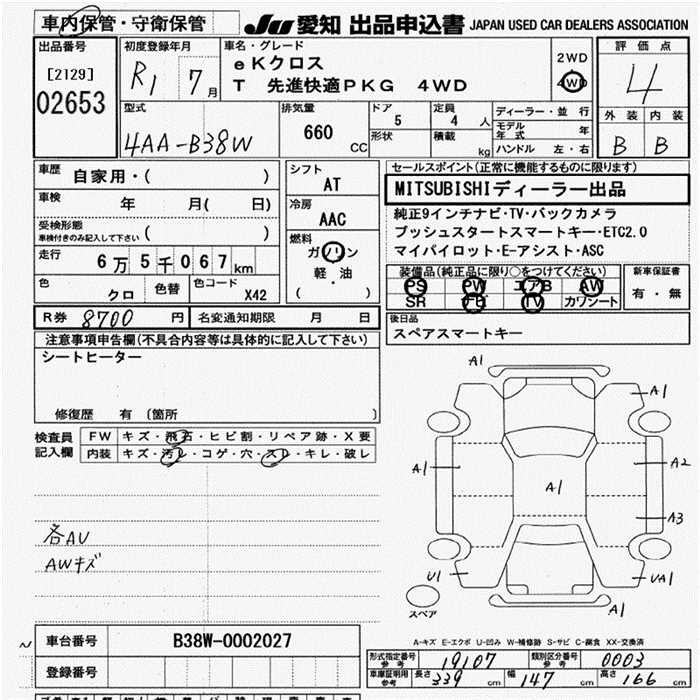 車内保管・守衛保管
JU 愛知 出品申込書 JAPAN USED CAR DEALERS ASSOCIATION
出品番号
[2129]
02653
初度登録年月
R1 7月
車名・グレード
eKクロス
T 先進快適PKG 4WD
2WD
4WD
評価点
4
外装 内装
B B
型式
4AA-B38W
排気量
660
CC
ドア
5
定員
4 人
形状
積載
kg
ディーラー・並行
モデル年式 年
ハンドル 左・右
車歴
自家用・( )
車検 年 月( 日)
受検形態
車検付きのみ記入して下さい ( )
走行 6万5千067km
色 クロ 色替 色コード X42
シフト
AT
冷房
AAC
燃料
ガソリン
軽・油
( )
セールスポイント(正常に機能するものに限ります)
MITSUBISHIディーラー出品
純正9インチナビ・TV・バックカメラ
プッシュスタートスマートキー・ETC2.0
マイパイロット・E-アシスト・ASC
装備品(純正品に限り○をつけてください)
PS PW エアB AW
SR TV カワシート
新車保証書
有・無
R券 8700 円 名変通知期限 月 日
後日品
スペアスマートキー
注意事項申告欄(不具合内容等は具体的に記入して下さい)
シートヒーター
修復歴 有 〔箇所 〕
検査員記入欄
FW キズ・飛石・ヒビ割・リペア跡・X要
内装 キズ・汚レ・コゲ・穴・スレ・キレ・破レ
各AU
AWキズ
A1
A1
A1
A2
A1
A3
U1
UA1
A1
スペア
車台番号 B38W-0002027
登録番号
A-キズ E-エクボ U-凹み W-補修跡 S-サビ C-腐食 XX-交換済
形式指定番号参考 19107 類別区分番号参考 0003
車庫証明用参考 長さ 339 cm 幅 147 cm 高さ 166 cm